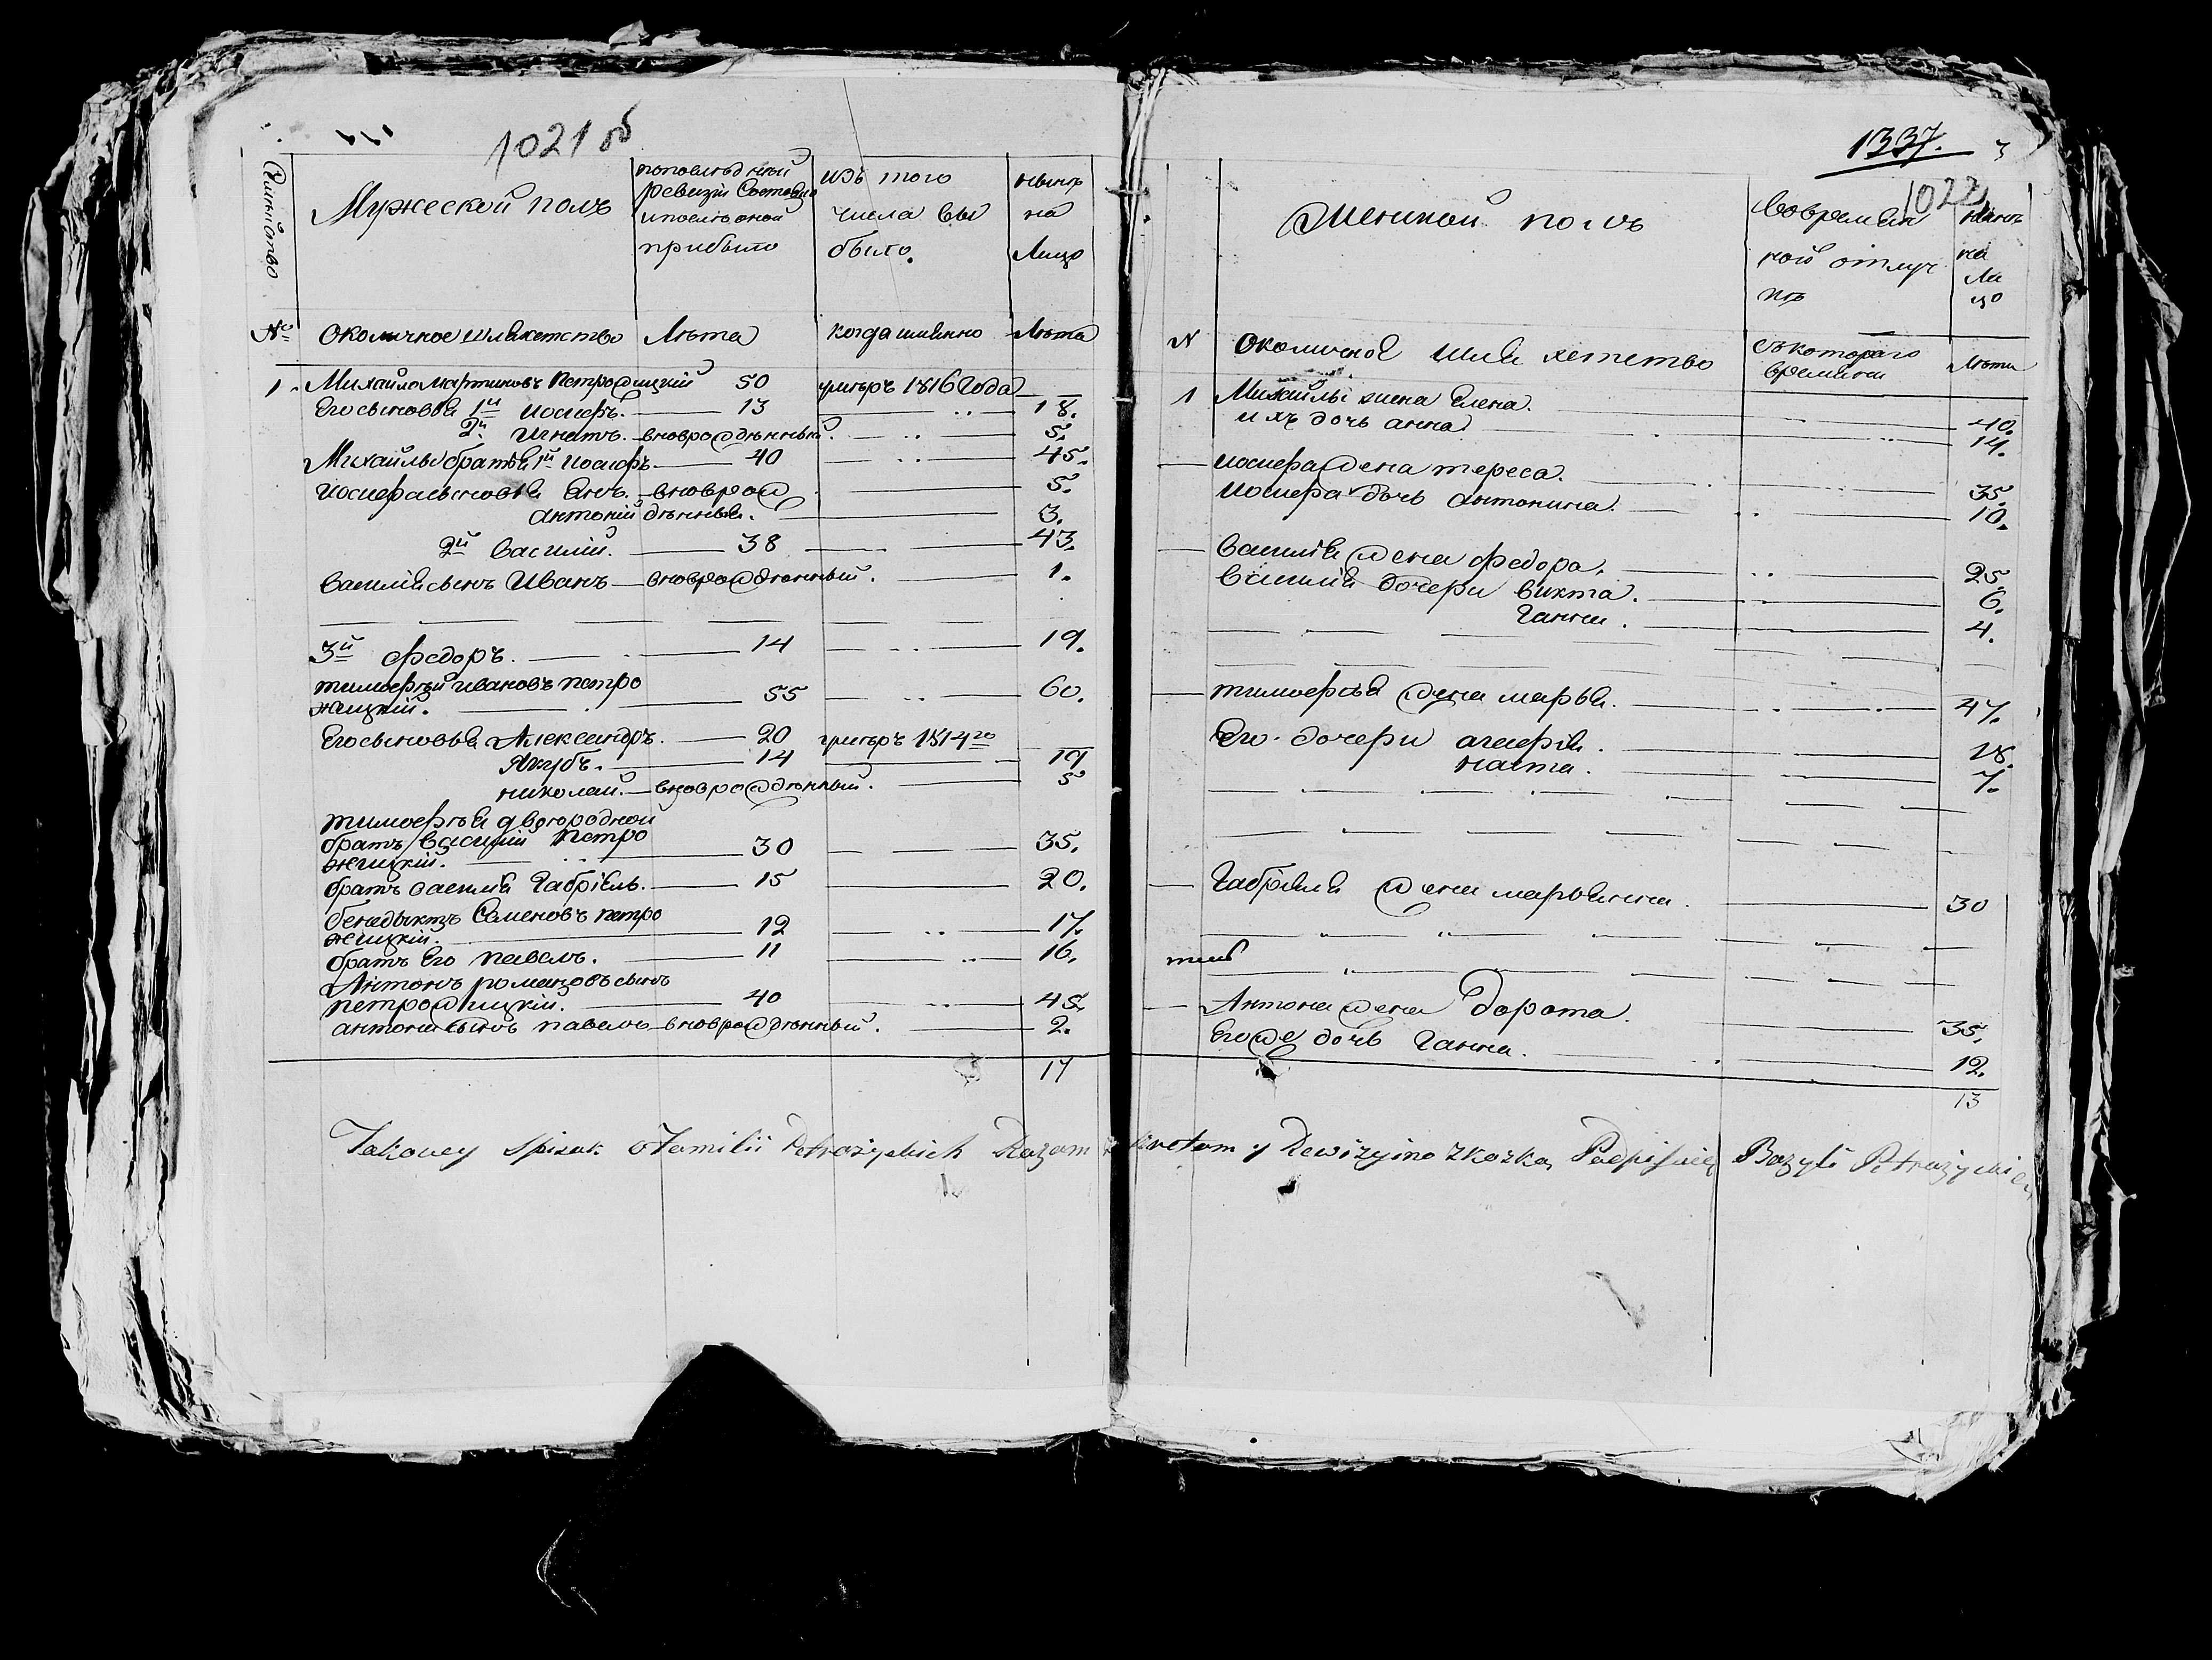 1021 об
Семейство
Мужеской полъ
попоследней
ревизiи Состояло
ипослѣ оной
прибыло
изъ того
числа вы
было.
нынѣ
на
Лицо
№
Околичное шляхетство
Лѣта
когда имянно
Лѣта
1. Михайло мартиновъ Петрожицкiй 50 умеръ 1816 Года
Его сыновья 1й иосифъ. 13 18.
2й Игнатъ. вноврожденный. 5.
Михайлы братья 1й иосифъ 40 45.
иосифа сыновья Янъ. вноврож 5.
антонiй денныя. 3.
2й Василiй. 38 43.
Василiя сынъ Иванъ вноврожденный. 1.
3й федоръ. 14 19.
тимофей ивановъ петро
жицкiй. 55 60.
Его сыновья Александръ. 20 умеръ 1814го
Якубъ. 14 19
николай. вноврожденный. 5
тимофея двоюродной
братъ Василiй Петро
жицкiй. 30 35.
братъ василiя Габрiель. 15 20.
бенедыктъ Семеновъ петро
жицкiй. 12 17.
братъ Его павелъ. 11 16.
Антонъ романовъ сынъ
петрожицкiй. 40 45
антона сынъ павелъ вноврожденный. 2.
17
1337. 3
1022
Женской полъ
Вовремян
ной отлуч
кѣ
нынѣ
на
Ли
цо
N Околичное Шля хетство
съкотораго
времяни
Лѣта
1 Михайлы жена Елена. 40.
ихъ дочь анна 14.
иосифа жена тереса. 35.
иосифа дочь антонина. 10.
василiя жена федора. 25.
василiя дочери викта. 6.
Ганна. 4.
тимофея жена марья. 47.
Его дочери агафiя. 18.
наста. 7.
Габрiеля жена марьянна. 30
Антона жена дорота. 35.
Егоже дочь Ганна. 12.
13
Takowy Spisak o Familii Petrażyckich Razam z kwotam y Rewizyino zkazka Padpisuię Bazyli Petrażycki